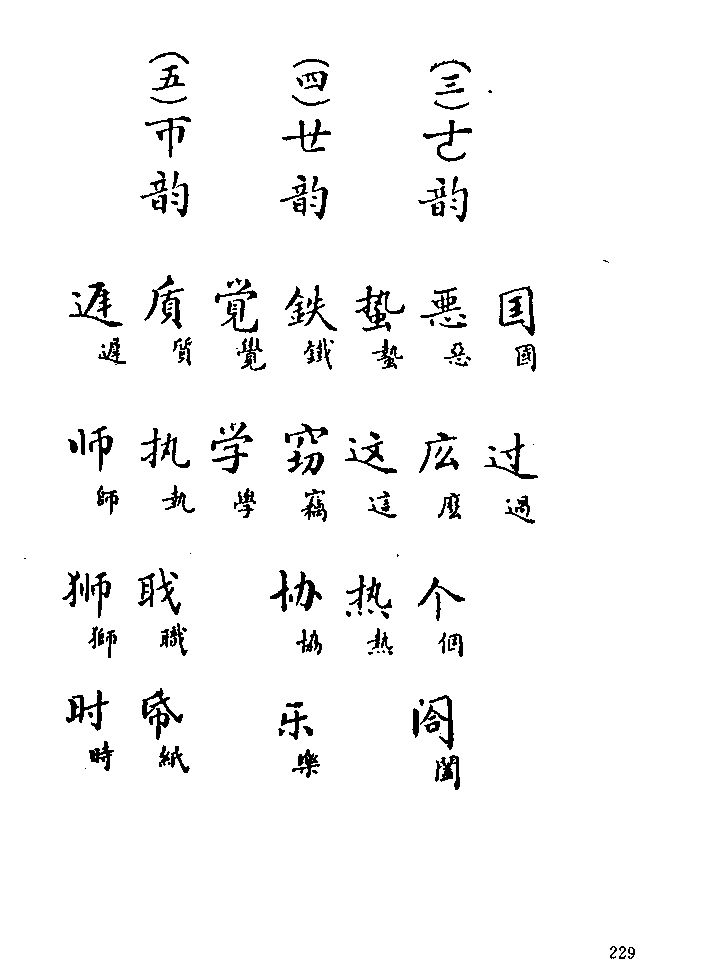 (三) 韵
囯 國 过 過
悪 惡 庅 麼 个 個 闔
蛰 蟄 这 這 热 熱
(四) 韵
鉄 鐵 窃 竊 协 協 乐 樂
覚 覺 学 學
(五) 帀韵
质 質 执 執 聀 職 帋 紙
遅 遲 师 師 狮 獅 时 時
229